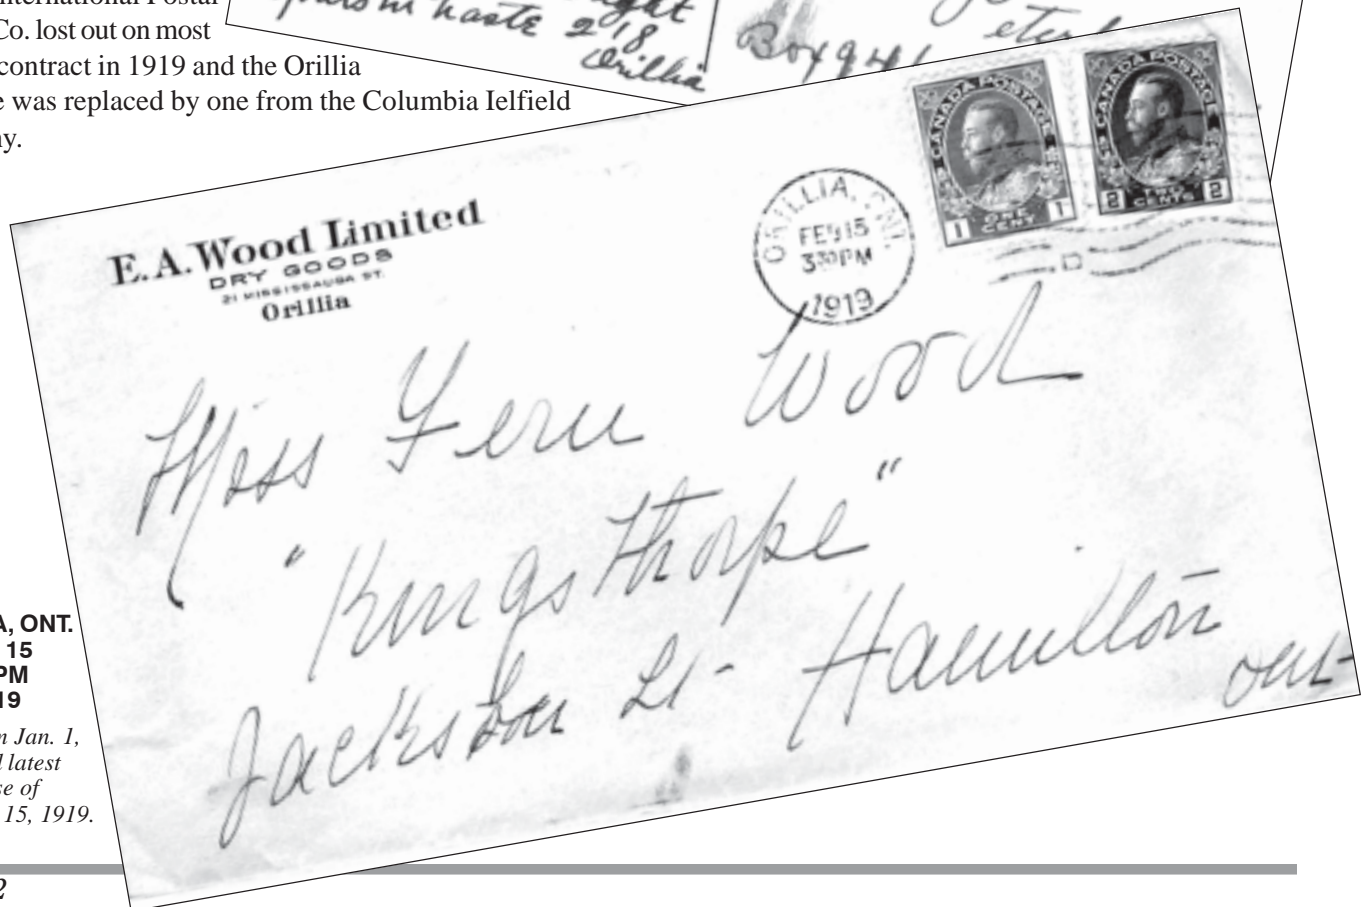 nternational Postal
Co. lost out on most
contract in 1919 and the Orillia
e was replaced by one from the Columbia Ielfield
ny.
in haste 218
Orillia
Box 941
E.A. Wood Limited
DRY GOODS
21 MISSISSAUGA ST.
Orillia
ORILLIA, ONT.
FEB 15
3 30 PM
1919
CANADA POSTAGE
1 ONE CENT 1
CANADA POSTAGE
2 TWO CENTS 2
Miss Fern Wood
"Kingsthorpe"
Jackson St Hamilton
Ont
A, ONT.
15
PM
19
n Jan. 1,
l latest
se of
15, 1919.
2